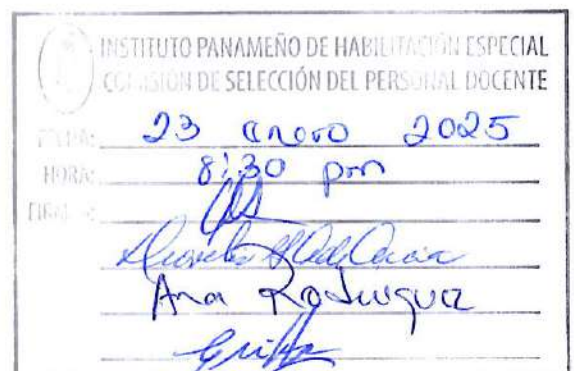 INSTITUTO PANAMEÑO DE HABILITACIÓN ESPECIAL
COMISIÓN DE SELECCIÓN DEL PERSONAL DOCENTE
FECHA: 23 enero 2025
HORA: 8:30 pm
Ana Rodriguez